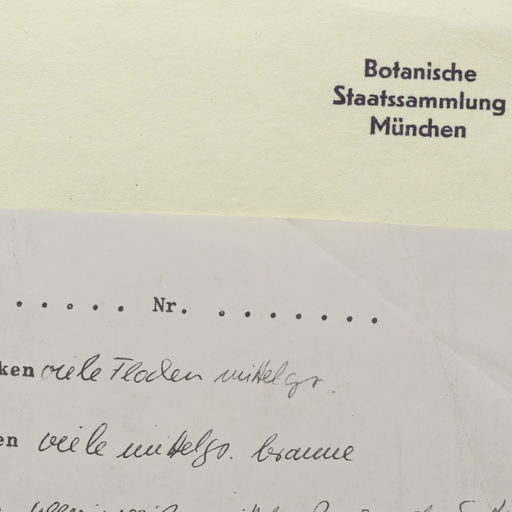 Botanische
Staatssammlung
München
. . . . . Nr. . . . . . . .
ken viele Fladen mittelgr.
en viele mittelgr. braune